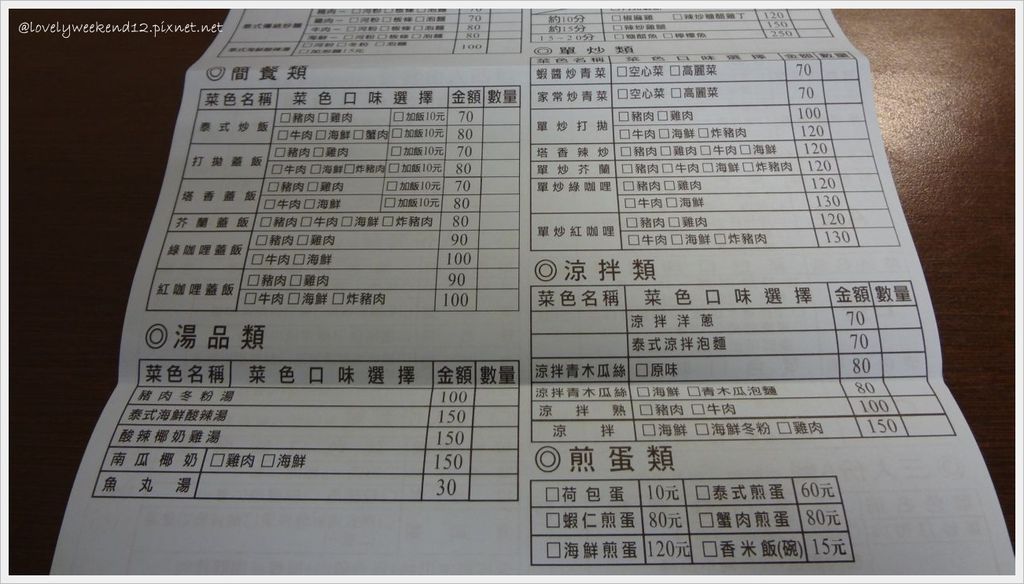 @lovelyweekend12.pixnet.net
雞肉－□河粉□板條□泡麵 70
牛肉－□河粉□板條□泡麵 80
海鮮－□河粉□板條□泡麵 80
泰式海鮮酸辣湯 □河粉□冬粉 □泡麵 100
◎間餐類
菜色名稱 菜色口味選擇 金額 數量
泰式炒飯 □豬肉□雞肉 □加飯10元 70
□牛肉□海鮮□蟹肉 □加飯10元 80
打拋蓋飯 □豬肉□雞肉 □加飯10元 70
□牛肉□海鮮□炸豬肉 □加飯10元 80
塔香蓋飯 □豬肉□雞肉 □加飯10元 70
□牛肉□海鮮 □加飯10元 80
芥蘭蓋飯 □豬肉□牛肉□海鮮□炸豬肉 80
綠咖哩蓋飯 □豬肉□雞肉 90
□牛肉□海鮮 100
紅咖哩蓋飯 □豬肉□雞肉 90
□牛肉□海鮮□炸豬肉 100
◎湯品類
菜色名稱 菜色口味選擇 金額 數量
豬肉冬粉湯 100
泰式海鮮酸辣湯 150
酸辣椰奶雞湯 150
南瓜椰奶 □雞肉□海鮮 150
魚丸湯 30
約10分 □椒麻雞 □辣炒醋雞丁 120
約15分 □辣炒雞翅 150
15～20分 □醋魚 □檸檬魚 250
◎單炒類
菜色名稱 菜色口味選擇 金額 數量
蝦醬炒青菜 □空心菜□高麗菜 70
家常炒青菜 □空心菜□高麗菜 70
單炒打拋 □豬肉□雞肉 100
□牛肉□海鮮□炸豬肉 120
塔香辣炒 □豬肉□雞肉□牛肉□海鮮 120
單炒芥蘭 □豬肉□牛肉□海鮮□炸豬肉 120
單炒綠咖哩 □豬肉□雞肉 120
□牛肉□海鮮 130
單炒紅咖哩 □豬肉□雞肉 120
□牛肉□海鮮□炸豬肉 130
◎涼拌類
菜色名稱 菜色口味選擇 金額 數量
涼拌洋蔥 70
泰式涼拌泡麵 70
涼拌青木瓜絲 □原味 80
涼拌青木瓜絲 □海鮮 □青木瓜泡麵 80
涼拌熟 □豬肉□牛肉 100
涼拌 □海鮮 □海鮮冬粉 □雞肉 150
◎煎蛋類
□荷包蛋 10元 □泰式煎蛋 60元
□蝦仁煎蛋 80元 □蟹肉煎蛋 80元
□海鮮煎蛋 120元 □香米飯(碗) 15元